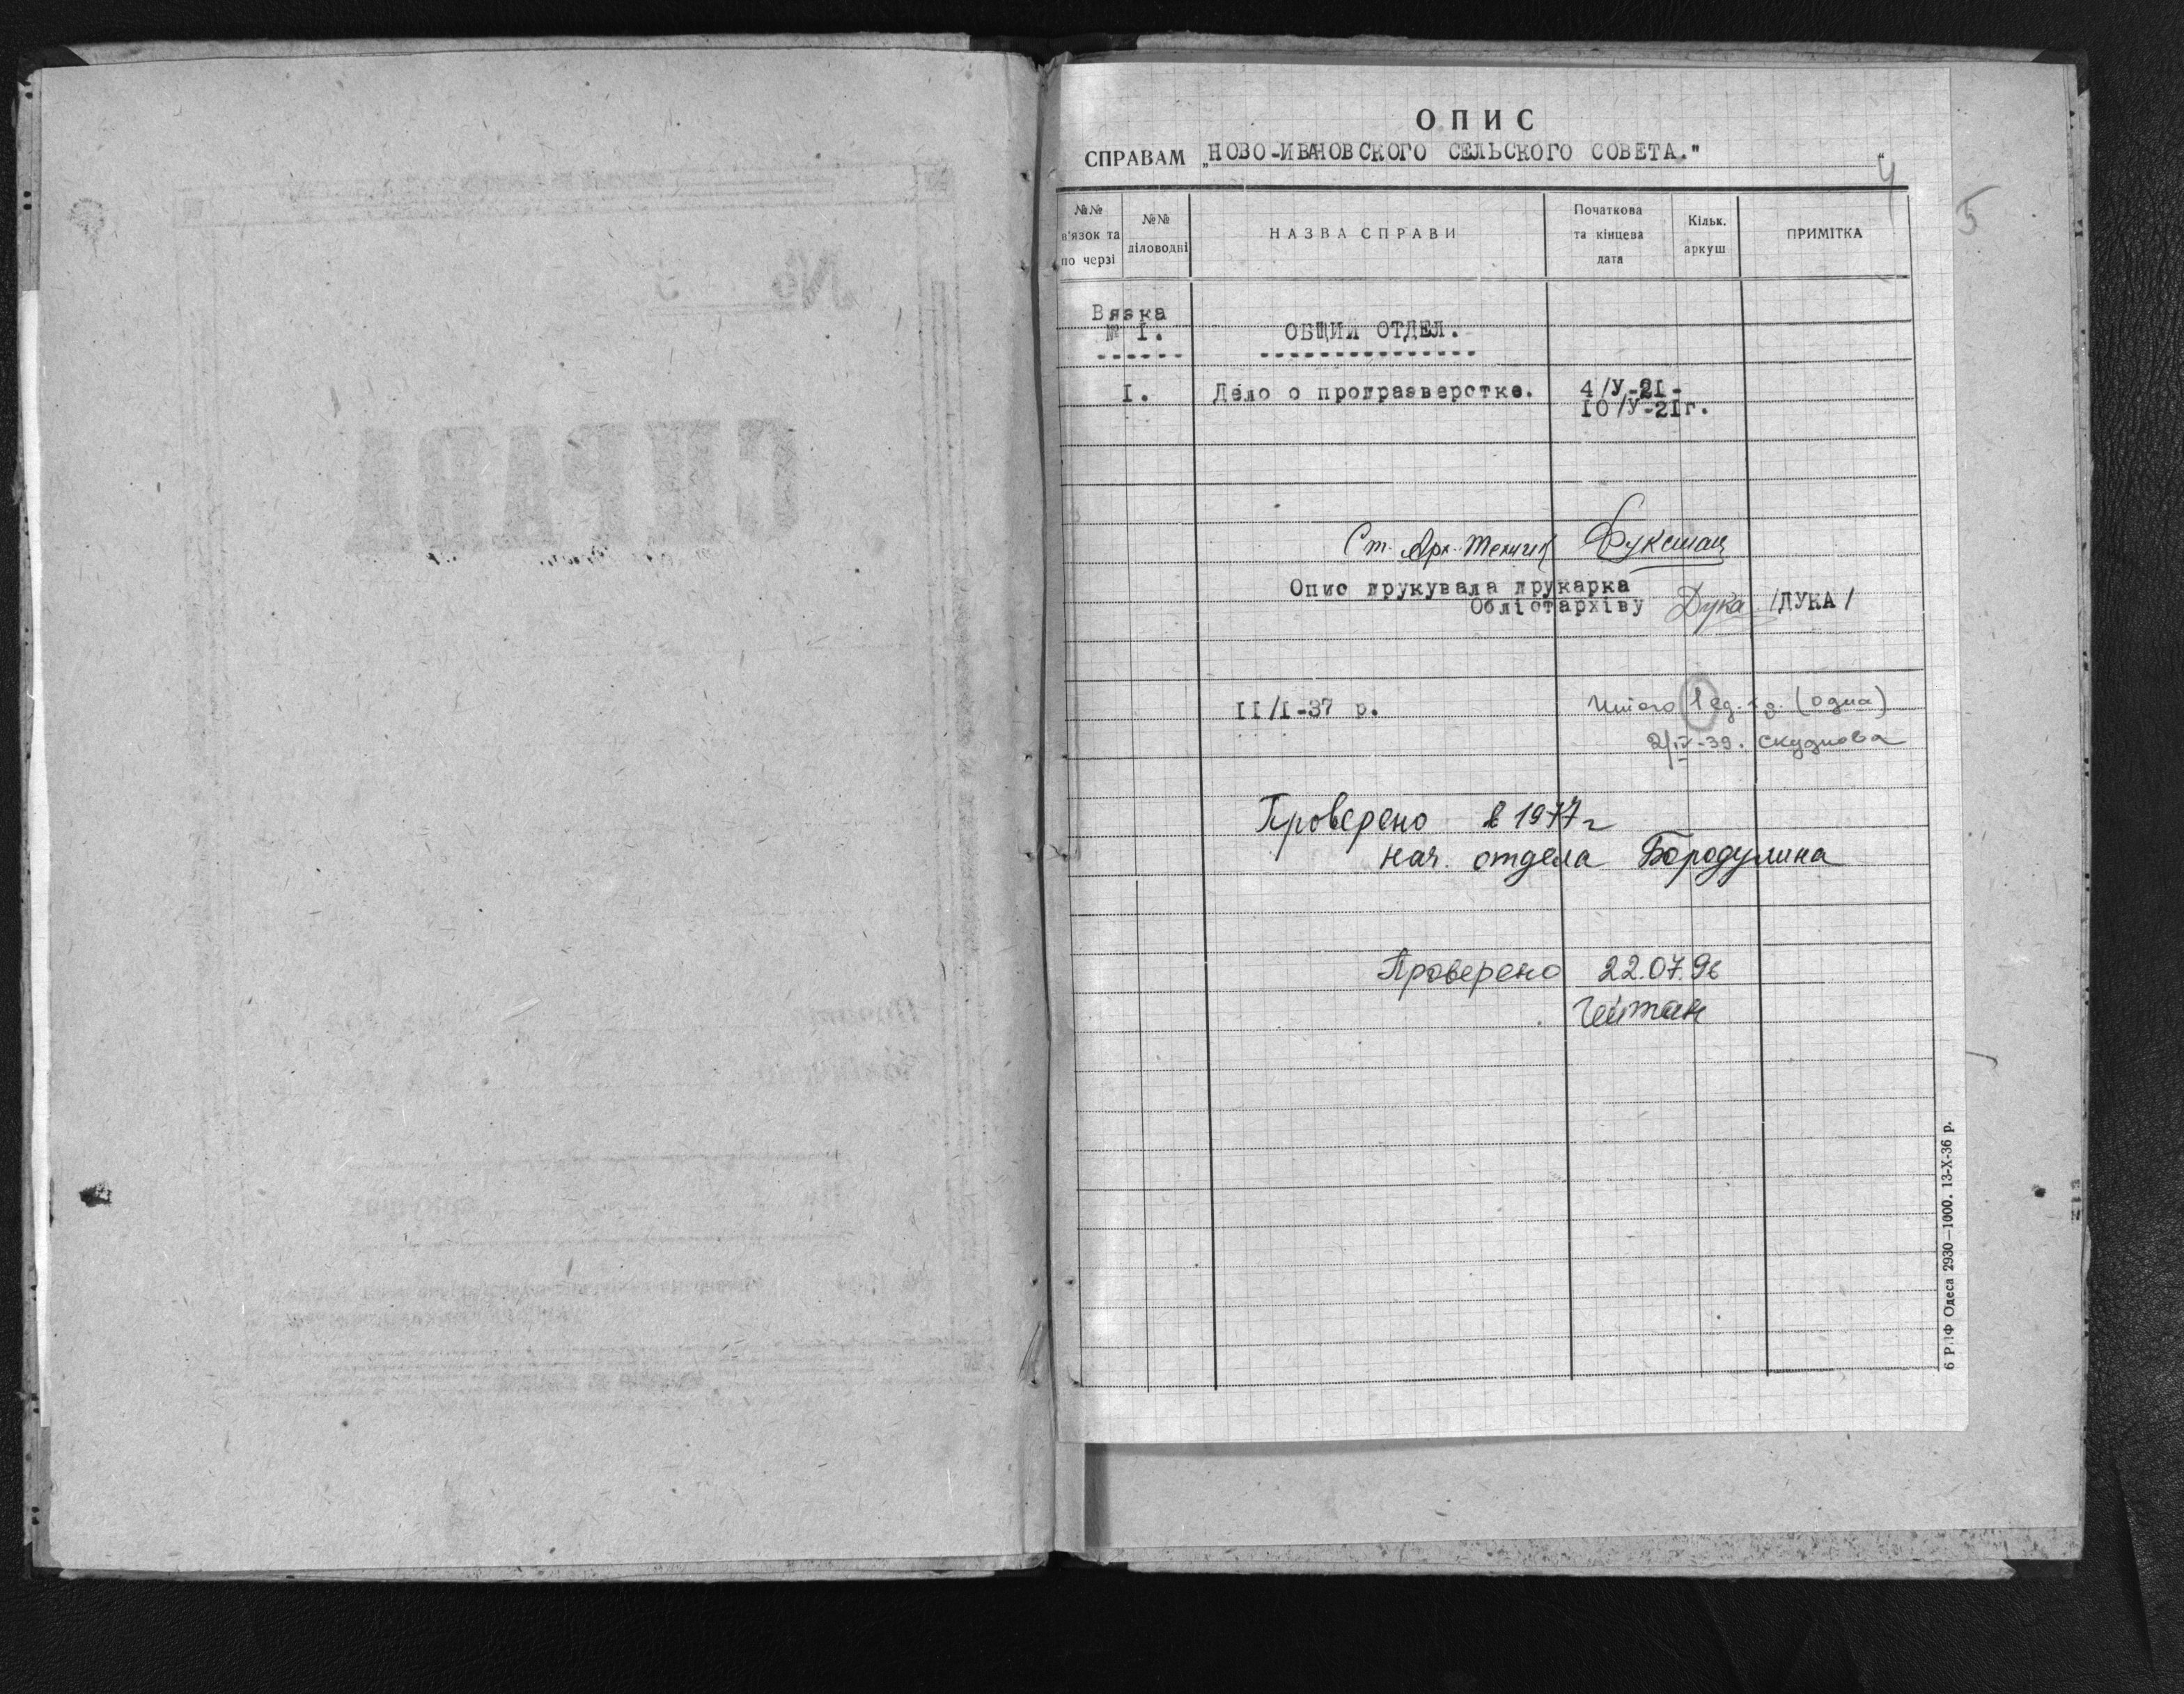 ОПИС
СПРАВАМ „НОВО-ИВАНОВСКОГО СЕЛЬСКОГО СОВЕТА."
4
5
№№ в'язок та по черзі
№№ діловодні
НАЗВА СПРАВИ
Початкова та кінцева дата
Кільк. аркуш
ПРИМІТКА
Вязка
№ I.
ОБЩИЙ ОТДЕЛ.
I. Дело о продразверстке. 4/У-21-
10/У-21г.
Ст. Арх. Техник
Опис друкувала друкарка
Облістархіву Дука /ДУКА/
II/I-37 р.
Итого 1 ед. хр. (одна)
2/IV-39. Скуднова
Проверено в 1977 г
нач. отдела Бородулина
Проверено 22.07.96
6 Р.ІФ Одеса 2930—1000. 13-X-36 р.
№ 3
СПРАВА